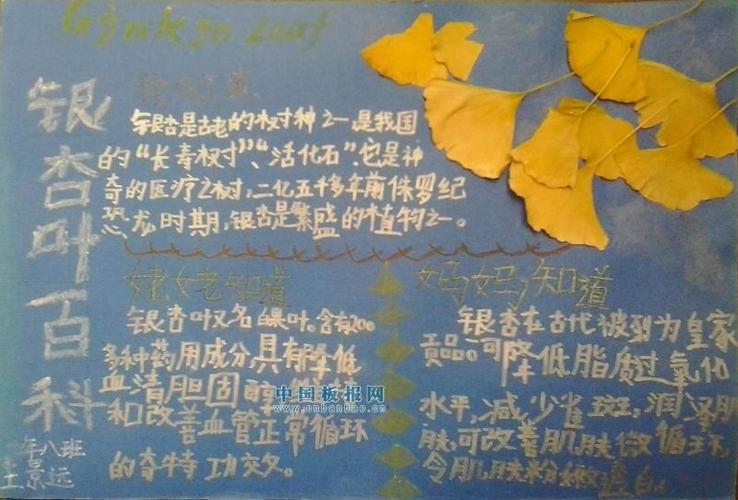 Ginkgo Leaf
银杏叶百科
银杏是古老的树种之一是我国
的“长寿树”、“活化石”。它是神
奇的医疗之树,二亿五千多年前侏罗纪
恐龙时期,银杏是繁盛的植物之一。
姥姥知道
银杏叶又名白果叶。含有200
多种药用成分,具有降低
血清胆固醇
和改善血管正常循环
的奇特功效。
妈妈知道
银杏在古代被列为皇家
贡品。可降低脂质过氧化
水平,减少雀斑,润泽肌
肤,可改善肌肤微循环,
令肌肤粉嫩透白。
中国板报网
www.cnbanbao.cn
年八班
景远